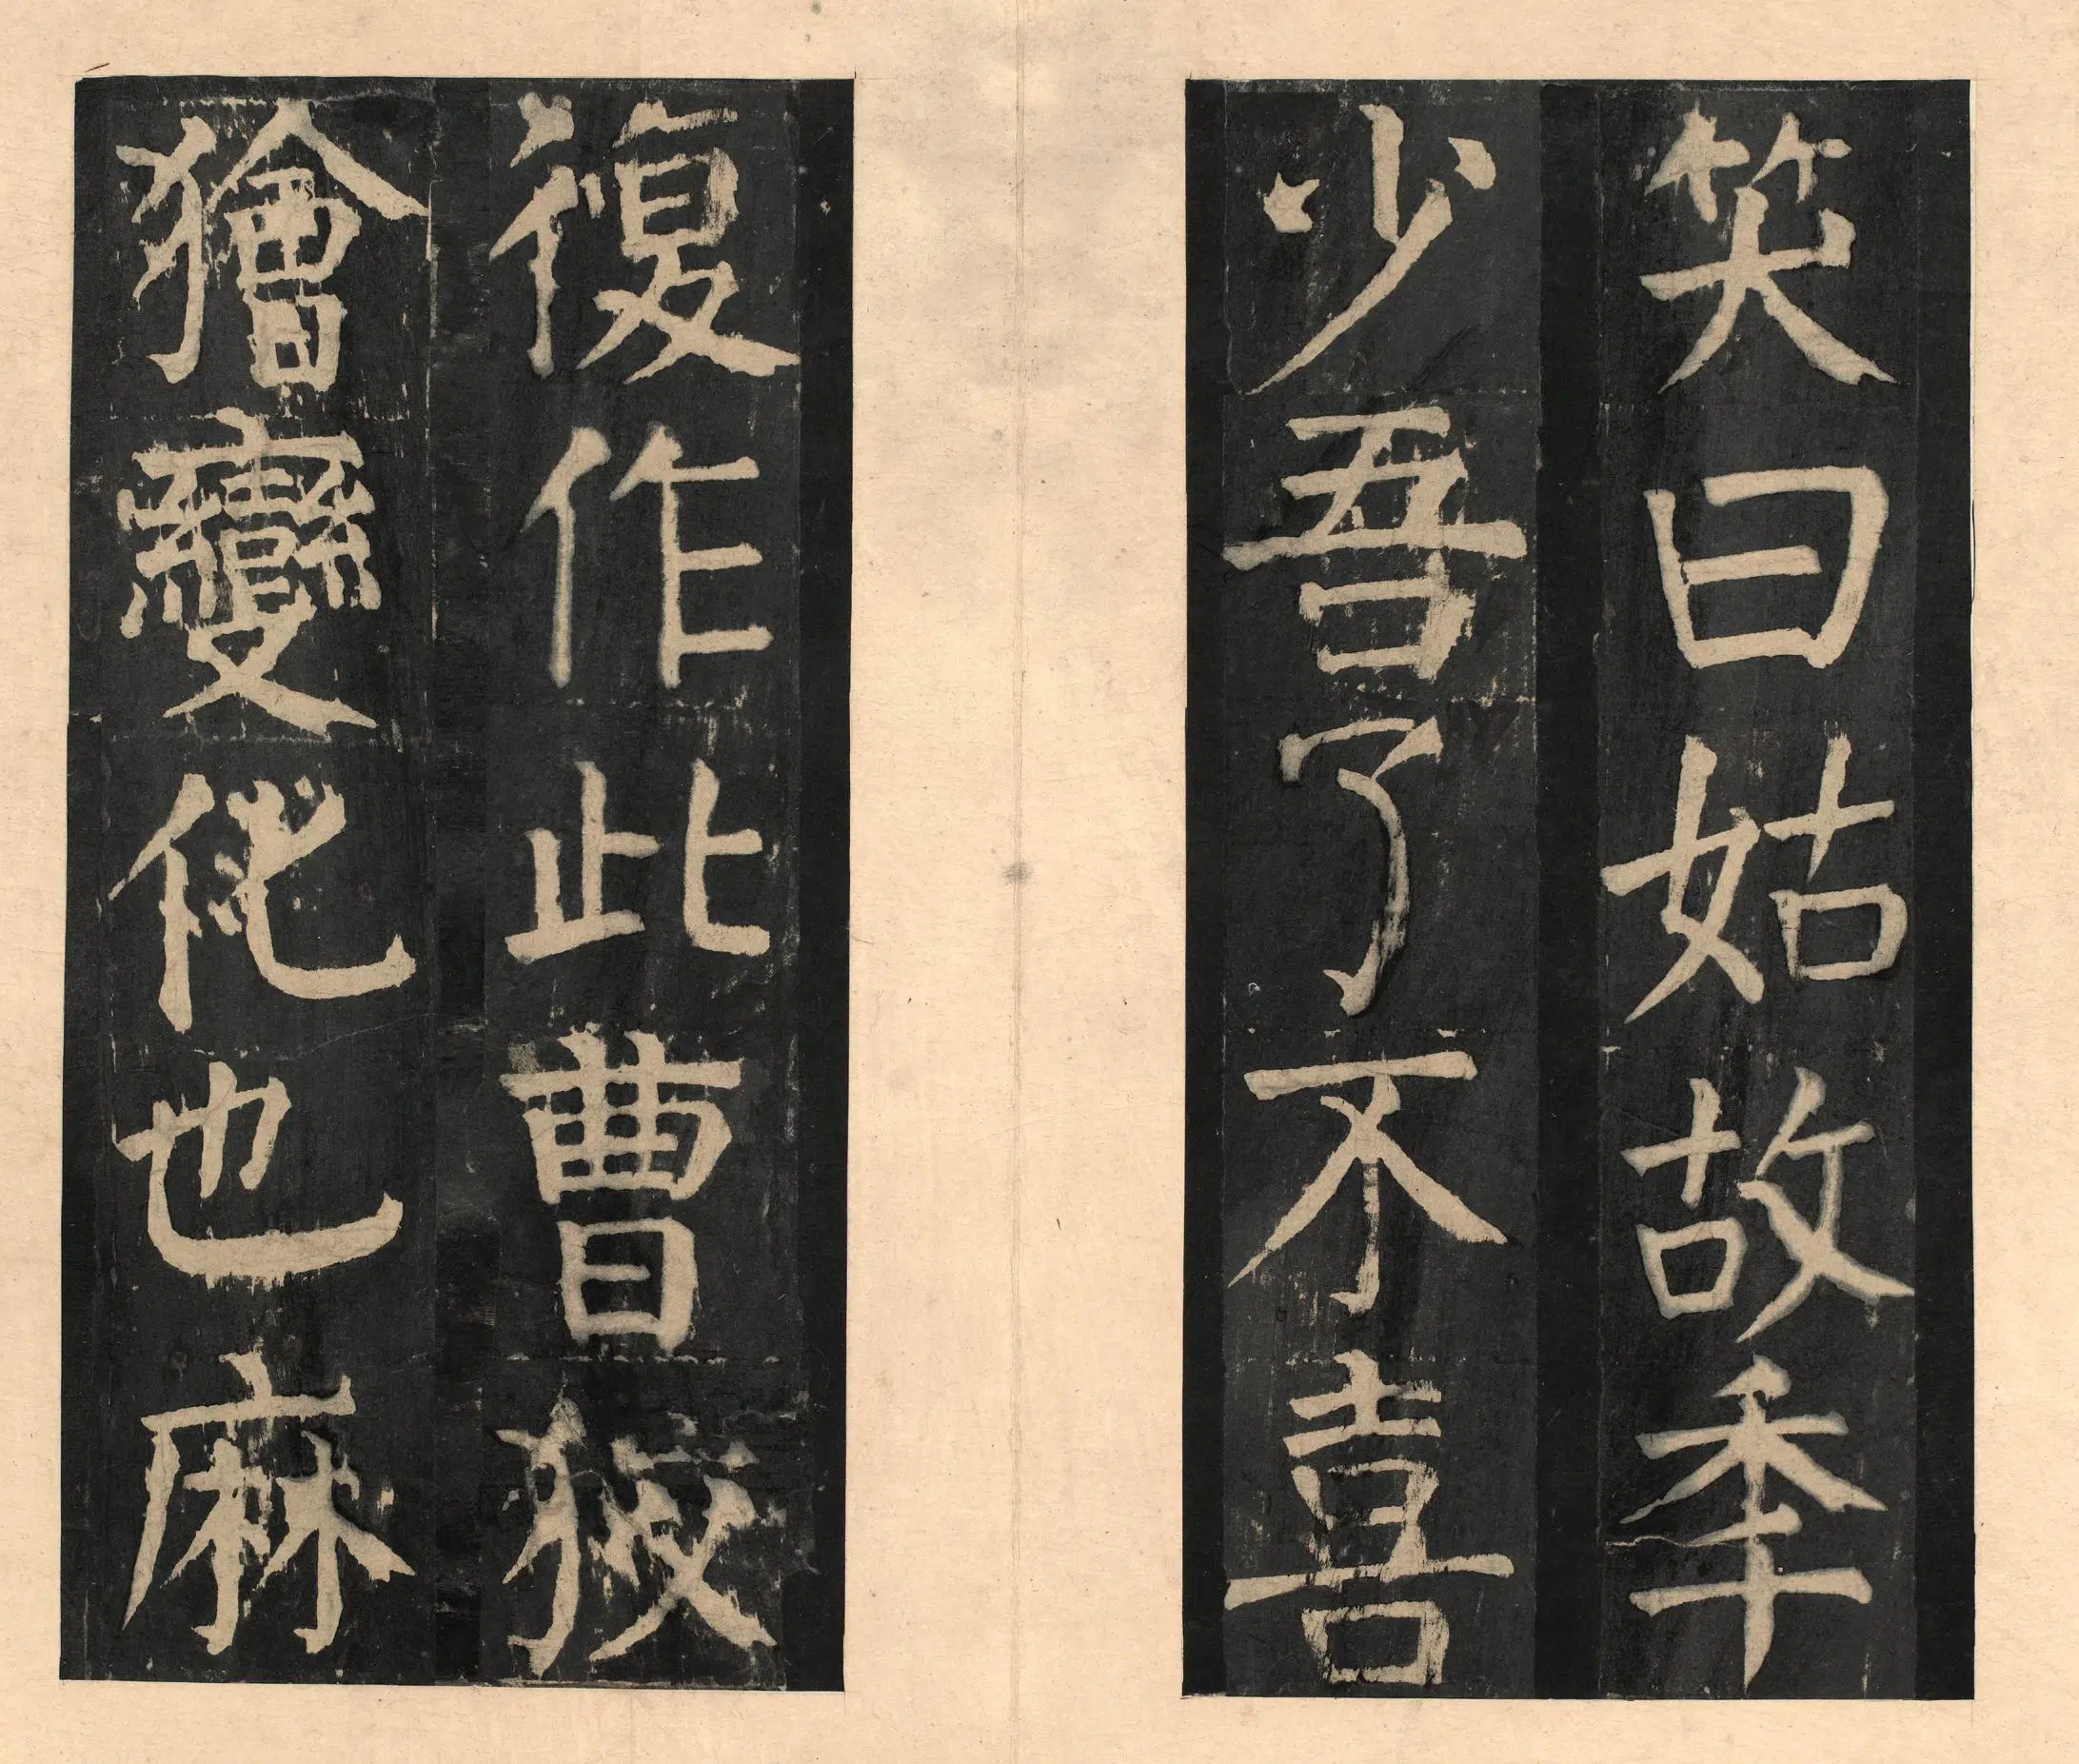 笑曰姑故季
少吾了不喜
復作此曹狡
獪變化也麻